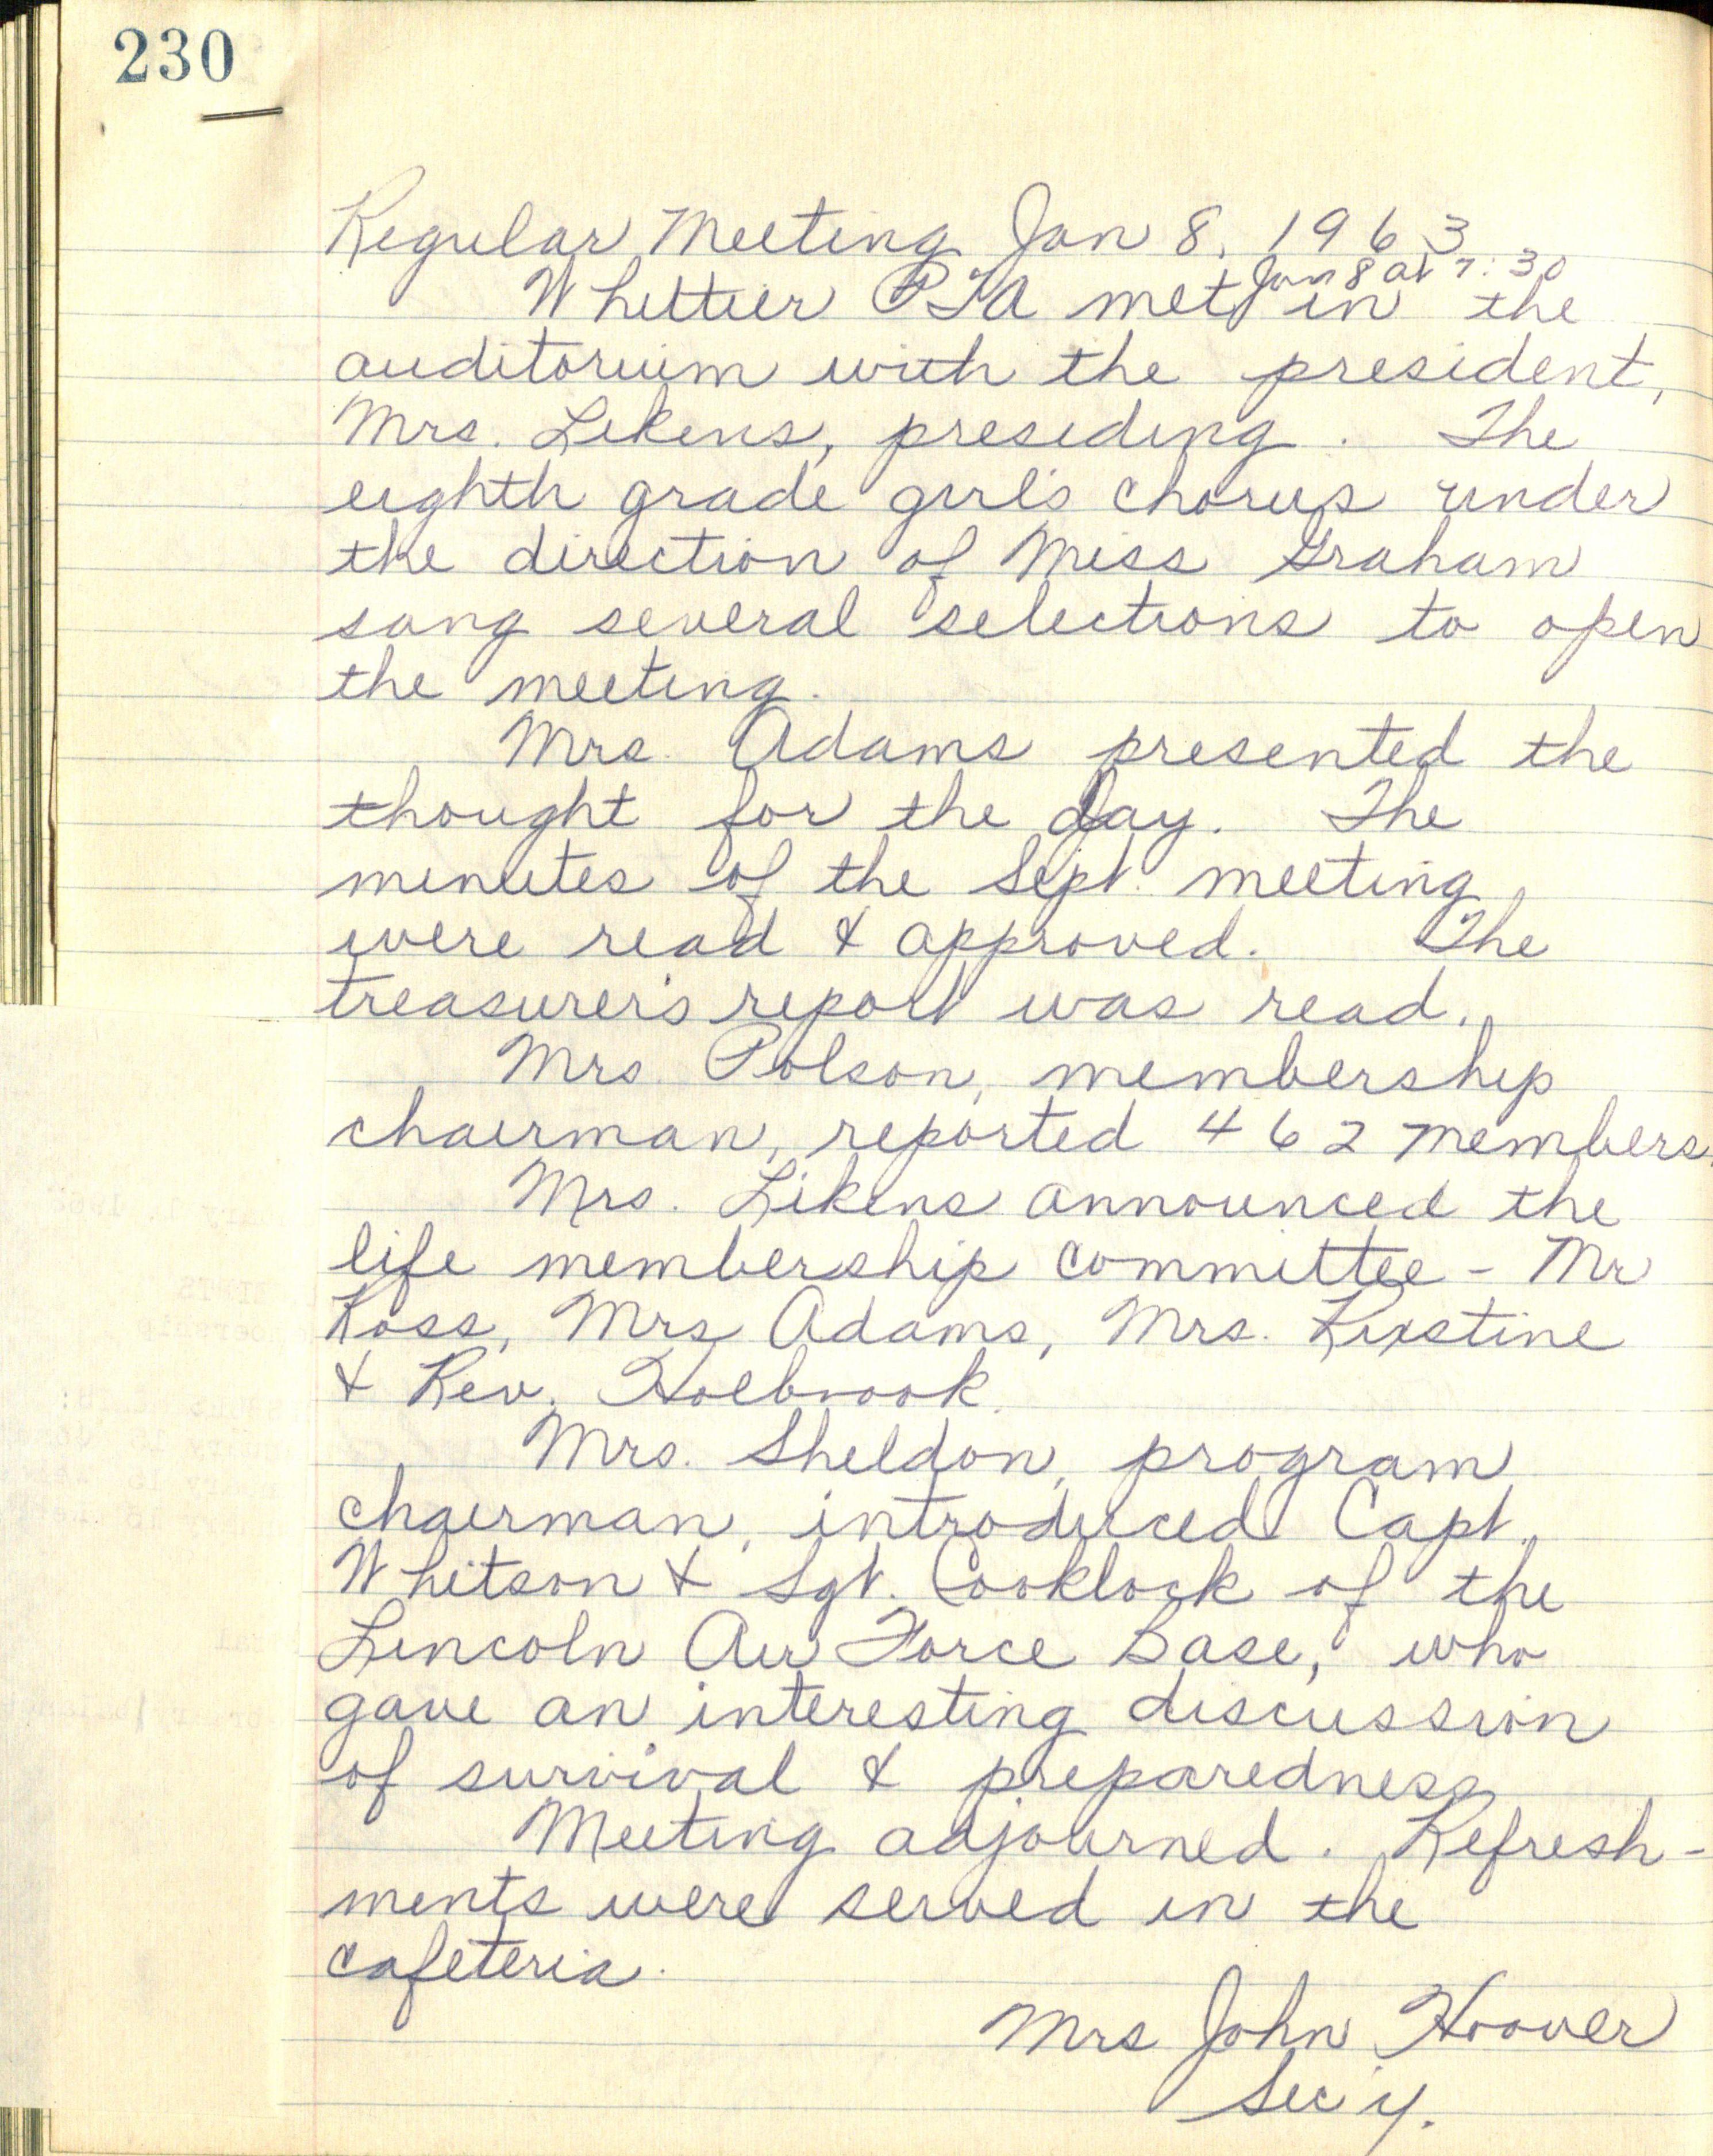 230
Regular Meeting Jan 8, 1963
Jan 8 at 7:30
Whittier PTA met in the
auditorium with the president,
Mrs. Likens, presiding. The
eighth grade girl's chorus under
the direction of Miss Graham
sang several selections to open
the meeting.
Mrs. Adams presented the
thought for the day. The
minutes of the Sept. meeting
were read & approved. The
treasurer's report was read.
Mrs. Polson, membership
chairman, reported 462 members.
Mrs. Likens announced the
life membership committee - Mr
Ross, Mrs Adams, Mrs.
& Rev. Holbrook.
Mrs. Sheldon, program
chairman, introduced Capt.
Whitson & Sgt. of the
Lincoln Air Force Base, who
gave an interesting discussion
of survival & preparedness
Meeting adjourned. Refresh-
ments were served in the
cafeteria.
Mrs John Hoover
Sec'y.